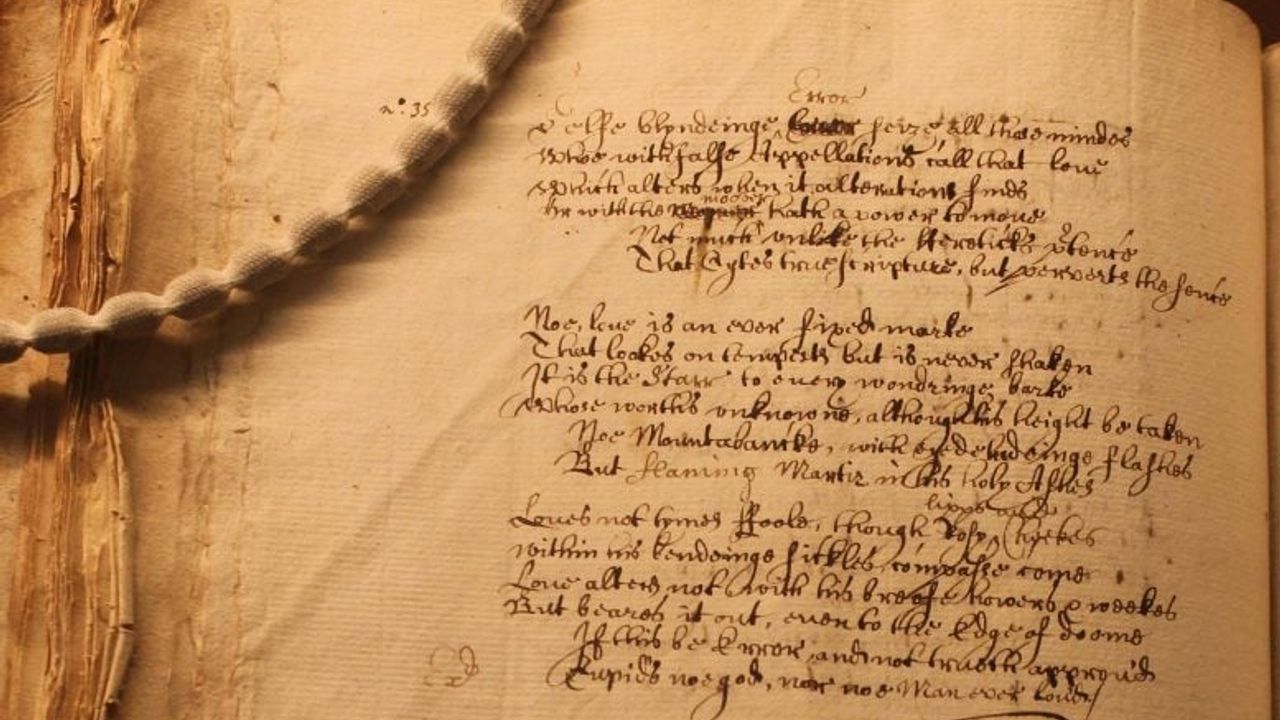 Error
n°. 35
Selfe blyndeinge seize all those mindes
Whoe with false Appellations call that love
Which alters when it alterations finds
moover
Or with the hath a power to move
Not much unlike the Hereticks ptence
That Cytes true scripture, but perverts the sence
Noe, love is an ever fixed marke
That lookes on tempests but is never shaken
It is the Starr to every wondringe barke
Whose worths unknowne, although his height be taken
Noe Mountabancke, with eyedeludeinge flashes
But flaming Martir in his holy Ashes
lipps and
Loves not tymes ffoole, though Rosy Cheekes
within his bendeinge sickles compasse come
Love alters not with his breife howers & weekes
But beares it out, even to the Edge of doome
If this be Error and not truth approvd
Cupids noe god, nor noe Man ever lovd